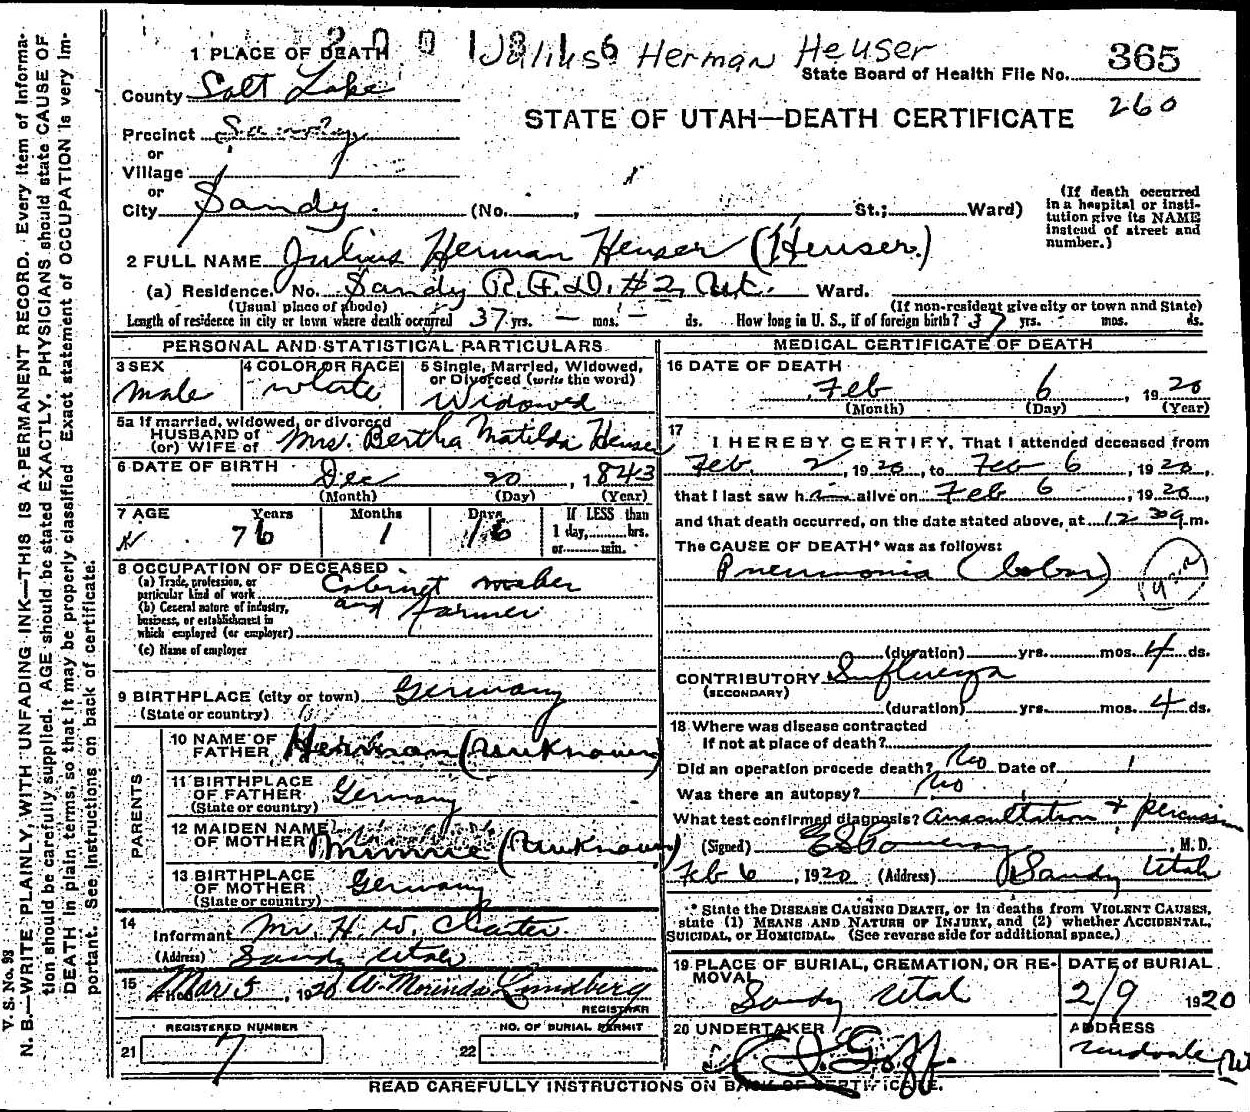 2001816 Julius Herman Heuser
1 PLACE OF DEATH
State Board of Health File No. 365
County Salt Lake
260
STATE OF UTAH—DEATH CERTIFICATE
Precinct Sandy
or
Village
or
City Sandy. (No. , St.; Ward)
(If death occurred in a hospital or institution give its NAME instead of street and number.)
2 FULL NAME Julius Herman Heuser (Heuser.)
(a) Residence. No. Sandy R.F.D. #2, Ut. Ward.
(Usual place of abode) (If non-resident give city or town and State)
Length of residence in city or town where death occurred 37 yrs. — mos. — ds. How long in U. S., if of foreign birth? 37 yrs. mos. ds.
PERSONAL AND STATISTICAL PARTICULARS
3 SEX
male
4 COLOR OR RACE
white
5 Single, Married, Widowed, or Divorced (write the word)
Widowed
5a If married, widowed, or divorced
HUSBAND of
(or) WIFE of Mrs. Bertha Matilda Heuser
6 DATE OF BIRTH Dec 20, 1843
(Month) (Day) (Year)
7 AGE
Years Months Days
76 1 16
If LESS than 1 day, hrs. or min.
8 OCCUPATION OF DECEASED
(a) Trade, profession, or particular kind of work Cabinet maker
and Farmer
(b) General nature of industry, business, or establishment in which employed (or employer)
(c) Name of employer
9 BIRTHPLACE (city or town) Germany
(State or country)
PARENTS
10 NAME OF FATHER Herman (Unknown)
11 BIRTHPLACE OF FATHER Germany
(State or country)
12 MAIDEN NAME OF MOTHER Minnie (Unknown)
13 BIRTHPLACE OF MOTHER Germany
(State or country)
14
Informant Mr H. W
(Address) Sandy Utah
15 Filed Mar 5, 1920 Lundberg
REGISTRAR
REGISTERED NUMBER
21 7
NO. OF BURIAL PERMIT
22
MEDICAL CERTIFICATE OF DEATH
16 DATE OF DEATH
Feb 6, 1920
(Month) (Day) (Year)
17
I HEREBY CERTIFY, That I attended deceased from
Feb. 2, 1920, to Feb 6, 1920,
that I last saw him alive on Feb 6, 1920,
and that death occurred, on the date stated above, at 12 30 a.m.
The CAUSE OF DEATH* was as follows:
Pneumonia (lobar)
(duration) yrs. mos. 4 ds.
CONTRIBUTORY Influenza
(SECONDARY)
(duration) yrs. mos. 4 ds.
18 Where was disease contracted
If not at place of death?
Did an operation precede death? No Date of
Was there an autopsy? No
What test confirmed diagnosis? Auscultation + percussion
(Signed) , M. D.
Feb 6, 1920 (Address) Sandy Utah
* State the DISEASE CAUSING DEATH, or in deaths from VIOLENT CAUSES, state (1) MEANS AND NATURE OF INJURY, and (2) whether ACCIDENTAL, SUICIDAL, or HOMICIDAL. (See reverse side for additional space.)
19 PLACE OF BURIAL, CREMATION, OR REMOVAL
Sandy Utah
DATE of BURIAL
2/9 1920
20 UNDERTAKER
Goff.
ADDRESS
READ CAREFULLY INSTRUCTIONS ON BACK OF CERTIFICATE.
V. S. No. 98
N. B.—WRITE PLAINLY, WITH UNFADING INK—THIS IS A PERMANENT RECORD. Every item of information should be carefully supplied. AGE should be stated EXACTLY. PHYSICIANS should state CAUSE OF DEATH in plain terms, so that it may be properly classified. Exact statement of OCCUPATION is very important. See instructions on back of certificate.